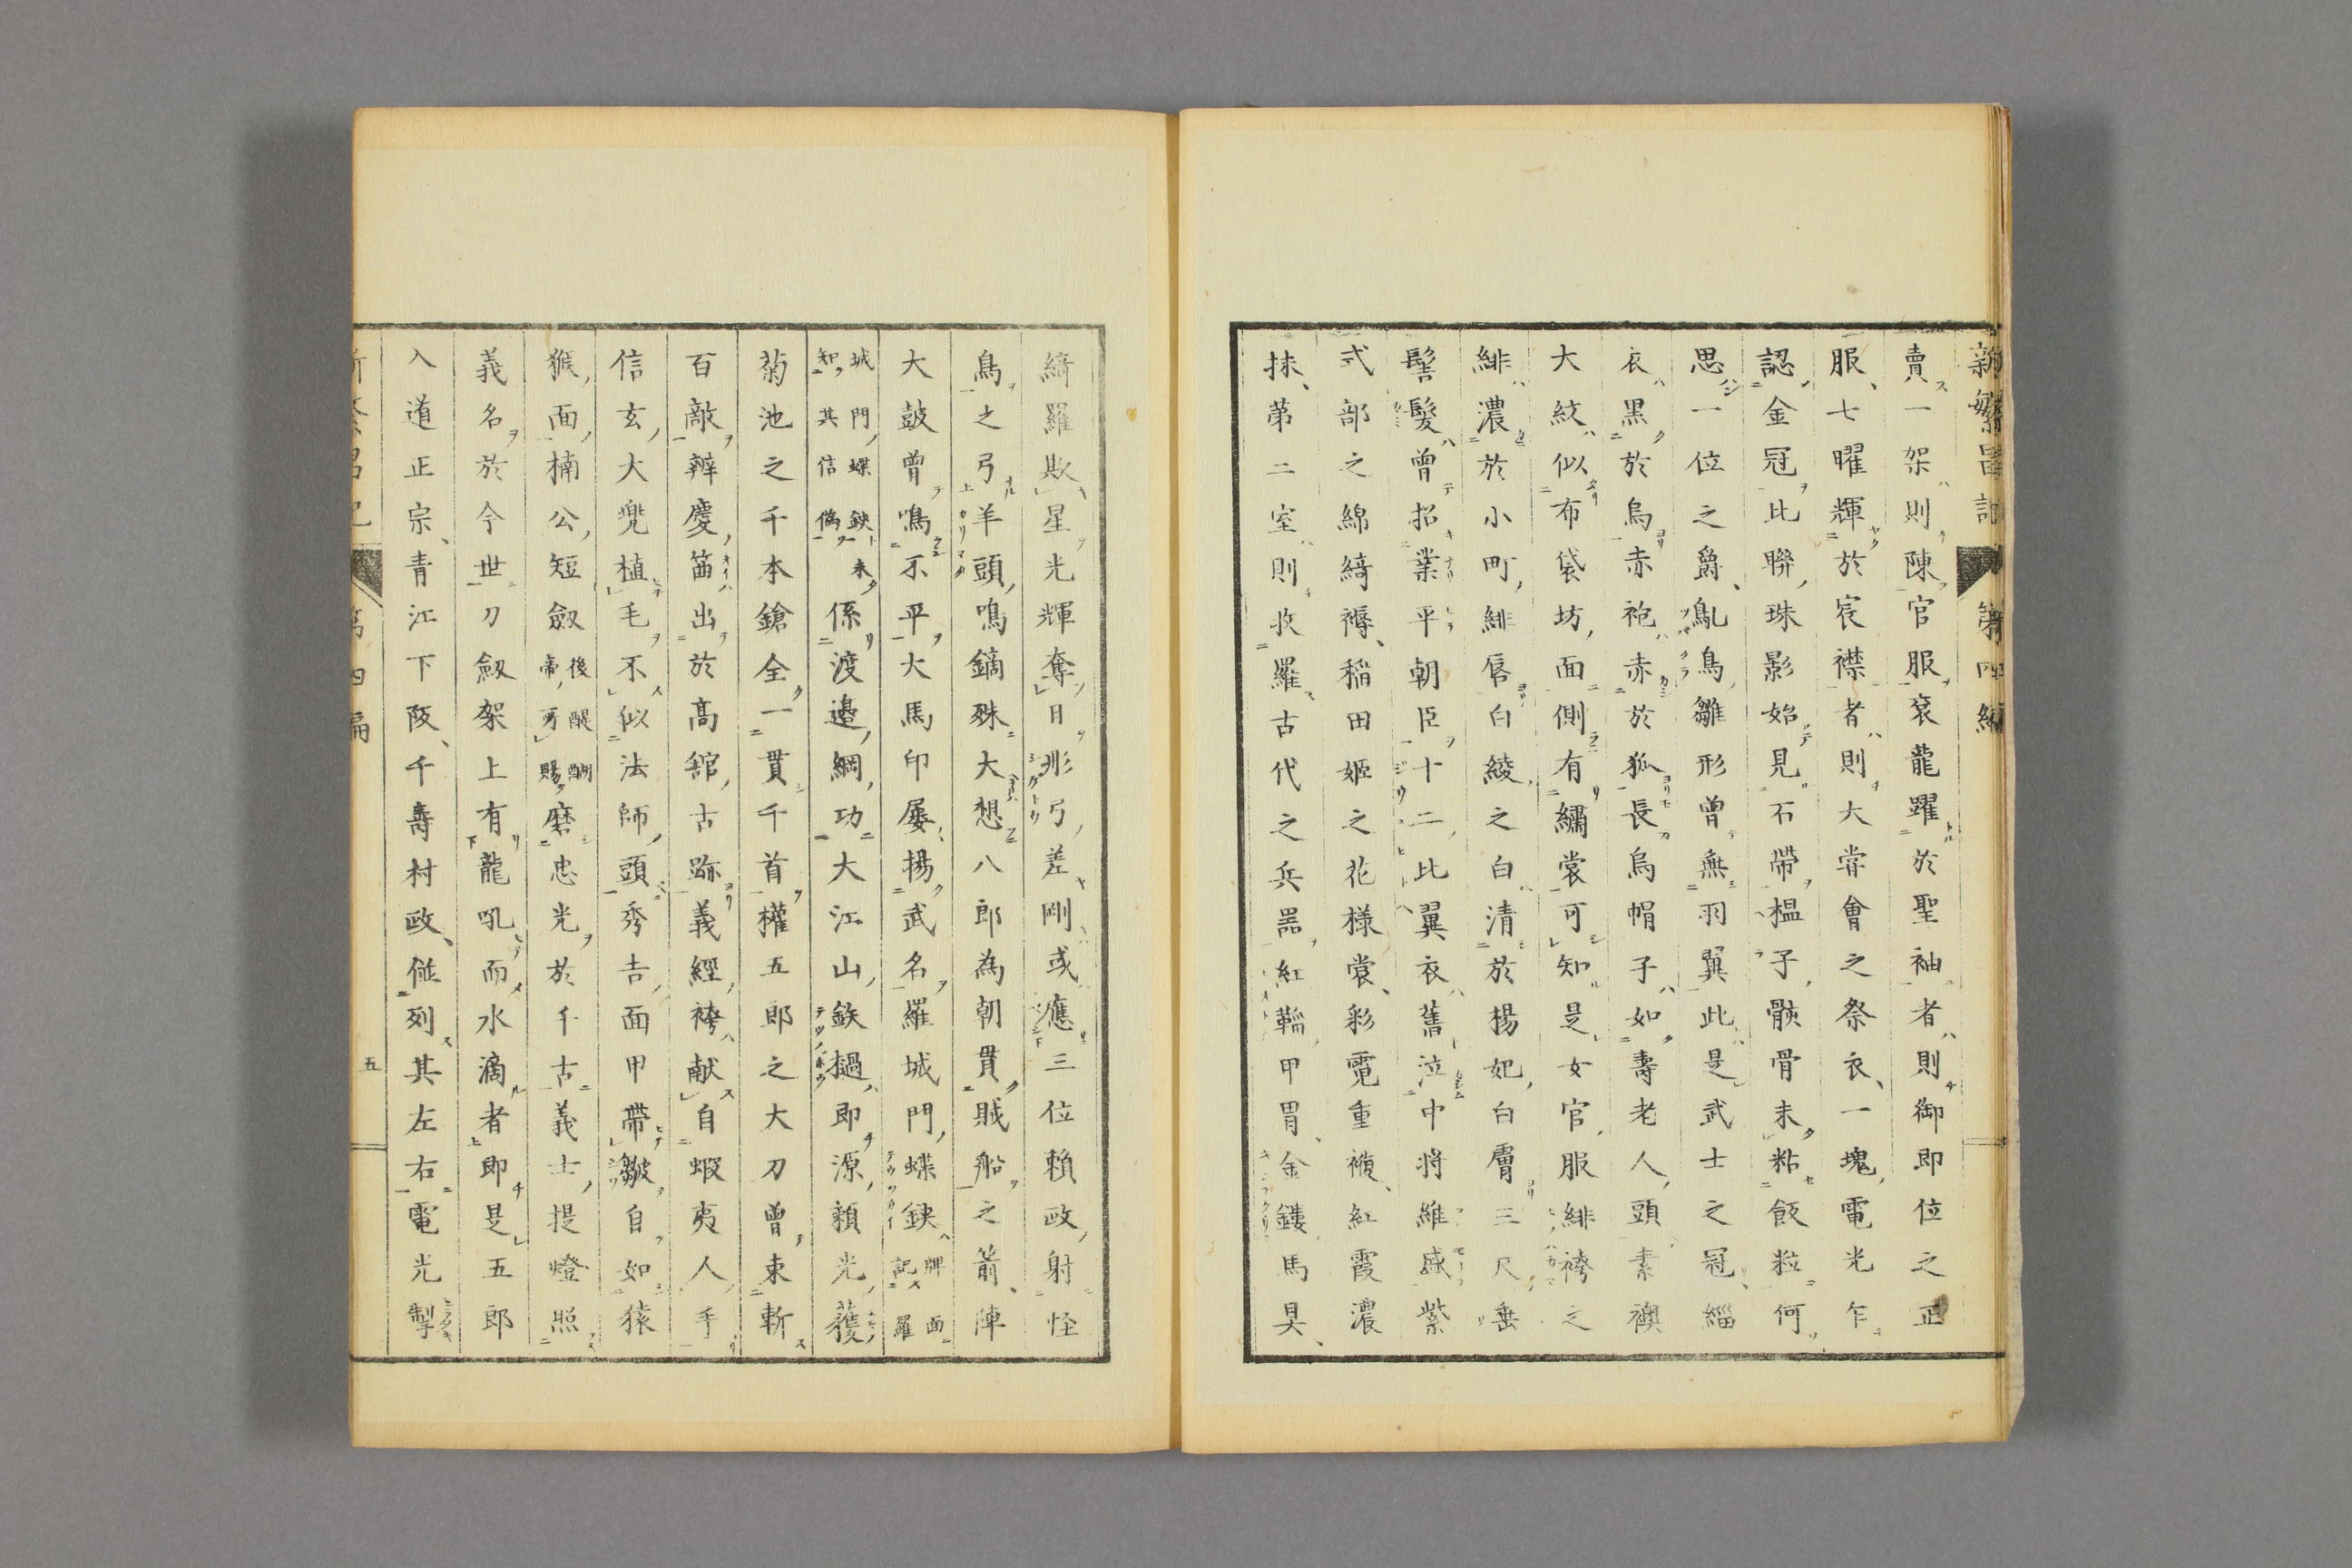 新繁昌記 第四編
賣一架則陳官服袞龍躍於聖袖者則御即位之正
服、七曜輝於宸襟者則大甞會之祭衣、一塊電光乍
認金冠比聯珠影始見石帶榲子骸骨末粘飯粒何
思一位之爵、鳥雛形曾無羽翼此是武士之冠緇
衣黒於烏赤袍赤於狐長烏帽子如壽老人頭素襖
大紋似布袋坊面側有繡裳可知是女官服緋袴之
緋濃於小町緋唇白綾之白清於楊妃白膚三尺垂
髻髮曾招業平朝臣十二比翼衣舊泣中將維盛紫
式部之綿綺褥、稲田姫之花様裳、彩霓重襏、紅霞濃
抹、第二室則收羅古代之兵噐紅鞱甲冑、金鏤馬具、
綺羅欺星光輝奪日彤弓差剛或應三位賴政射怪
鳥之弓羊頭鳴鏑殊大想八郎為朝貫賊船之箭、陣
大皷曾鳴不平大馬印屡揚武名羅城門蝶鋏牌面記羅
城門蝶鋏未知其信偽係渡邉綱功大江山鉄檛即源賴光獲
菊池之千本鎗全一貫千首權五郎之大刀曾束斬
百敵辨慶笛出於髙舘古跡義經袴献自蝦夷人手
信玄大兜植毛不似法師頭秀吉面甲帶皺自如猿
猴面楠公短劔後醍醐帝所賜磨忠光於千古義士提燈照
義名於今世刀劔架上有龍吼而水滴者即是五郎
入道正宗、青江下阪、千壽村政、並列其左右電光掣
第四編 五